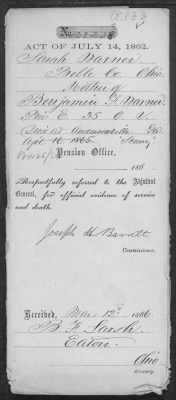 ACT OF JULY 14, 1862.
Sarah Warner
Preble Co. Ohio
Mother of
Benjamin F. Warner
Priv E 35 O. V.
Died at Andersonville Ga
1865
Pension Office,
186
Respectfully referred to the Adjutant
General, for official evidence of service
and death.
Joseph H Barrett
Commissioner.
Received, Mar 12th 1866
B. F. Larsh
Eaton
Ohio
Attorney.